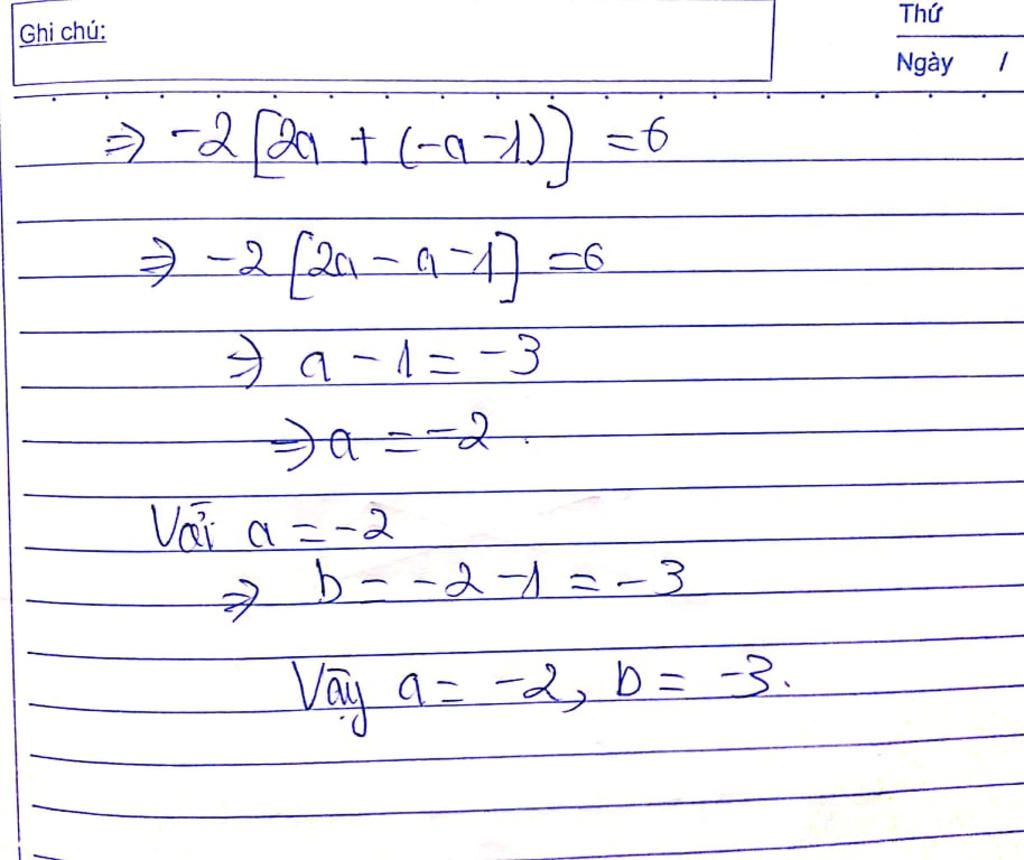 Ghi chú:
Thứ
Ngày /
⇒ -2 [2a + (-a -1)] = 6
⇒ -2 [2a - a -1] = 6
⇒ a - 1 = -3
⇒ a = -2.
Với a = -2
⇒ b = -2 -1 = -3
Vậy a = -2, b = -3.